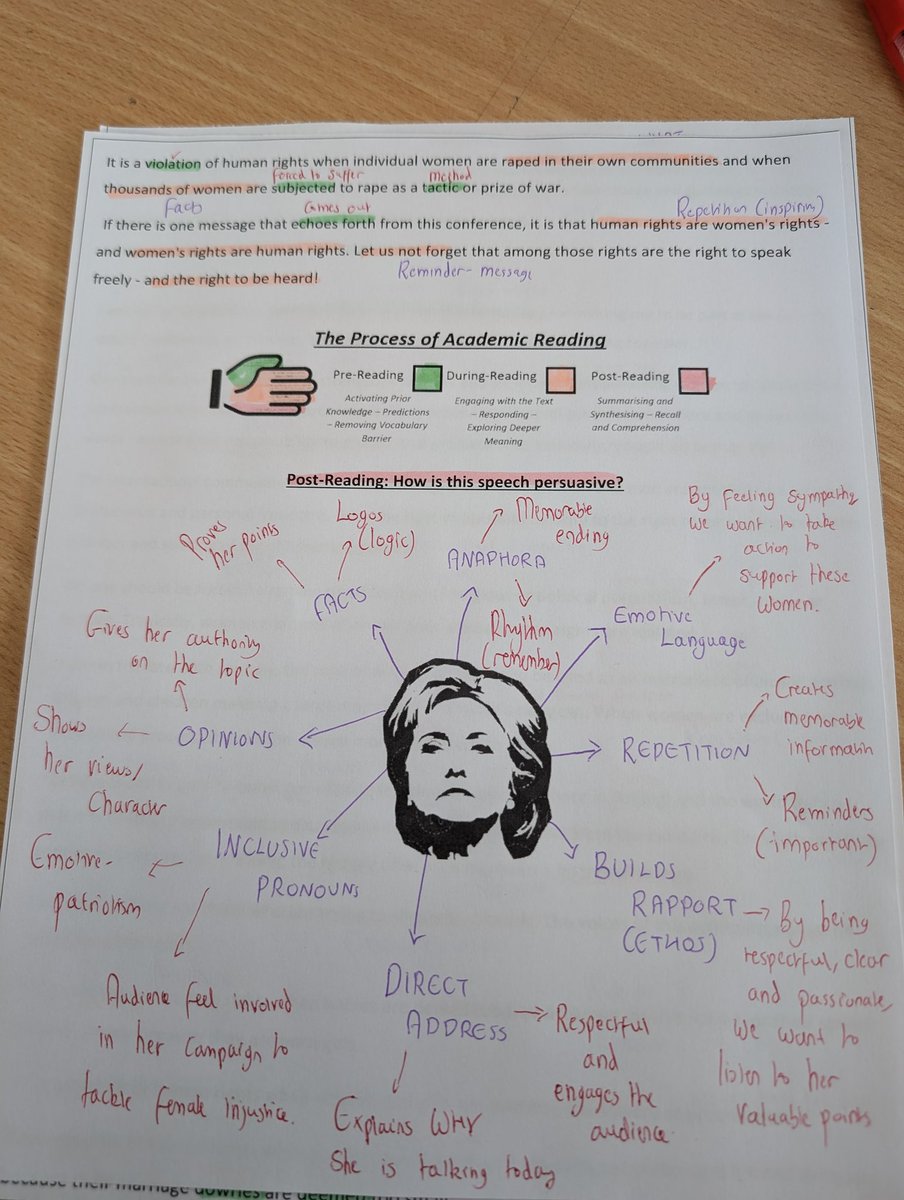 It is a violation of human rights when individual women are raped in their own communities and when
forced to suffer
method
thousands of women are subjected to rape as a tactic or prize of war.
Facts
Comes out
Repetition (inspiring)
If there is one message that echoes forth from this conference, it is that human rights are women's rights -
and women's rights are human rights. Let us not forget that among those rights are the right to speak
Reminder - message
freely - and the right to be heard!
The Process of Academic Reading
Pre-Reading
During-Reading
Post-Reading
Activating Prior
Knowledge – Predictions
– Removing Vocabulary
Barrier
Engaging with the Text
– Responding –
Exploring Deeper
Meaning
Summarising and
Synthesising – Recall
and Comprehension
Post-Reading: How is this speech persuasive?
FACTS
Proves
her points
Logos
(logic)
ANAPHORA
Memorable
ending
Rhythm
(remember)
Emotive
Language
By feeling sympathy
we want to take
action to
support these
women.
OPINIONS
Gives her authority
on the topic
Shows
her views/
Character
REPETITION
Creates
memorable
information
Reminders
(important)
INCLUSIVE
PRONOUNS
Emotive-
patriotism
Audience feel involved
in her campaign to
tackle female injustice.
BUILDS
RAPPORT
(ETHOS)
By being
respectful, clear
and passionate,
we want to
listen to her
valuable points
DIRECT
ADDRESS
Respectful
and
engages the
audience
Explains WHY
She is talking today
because their marriage dowries are deemed